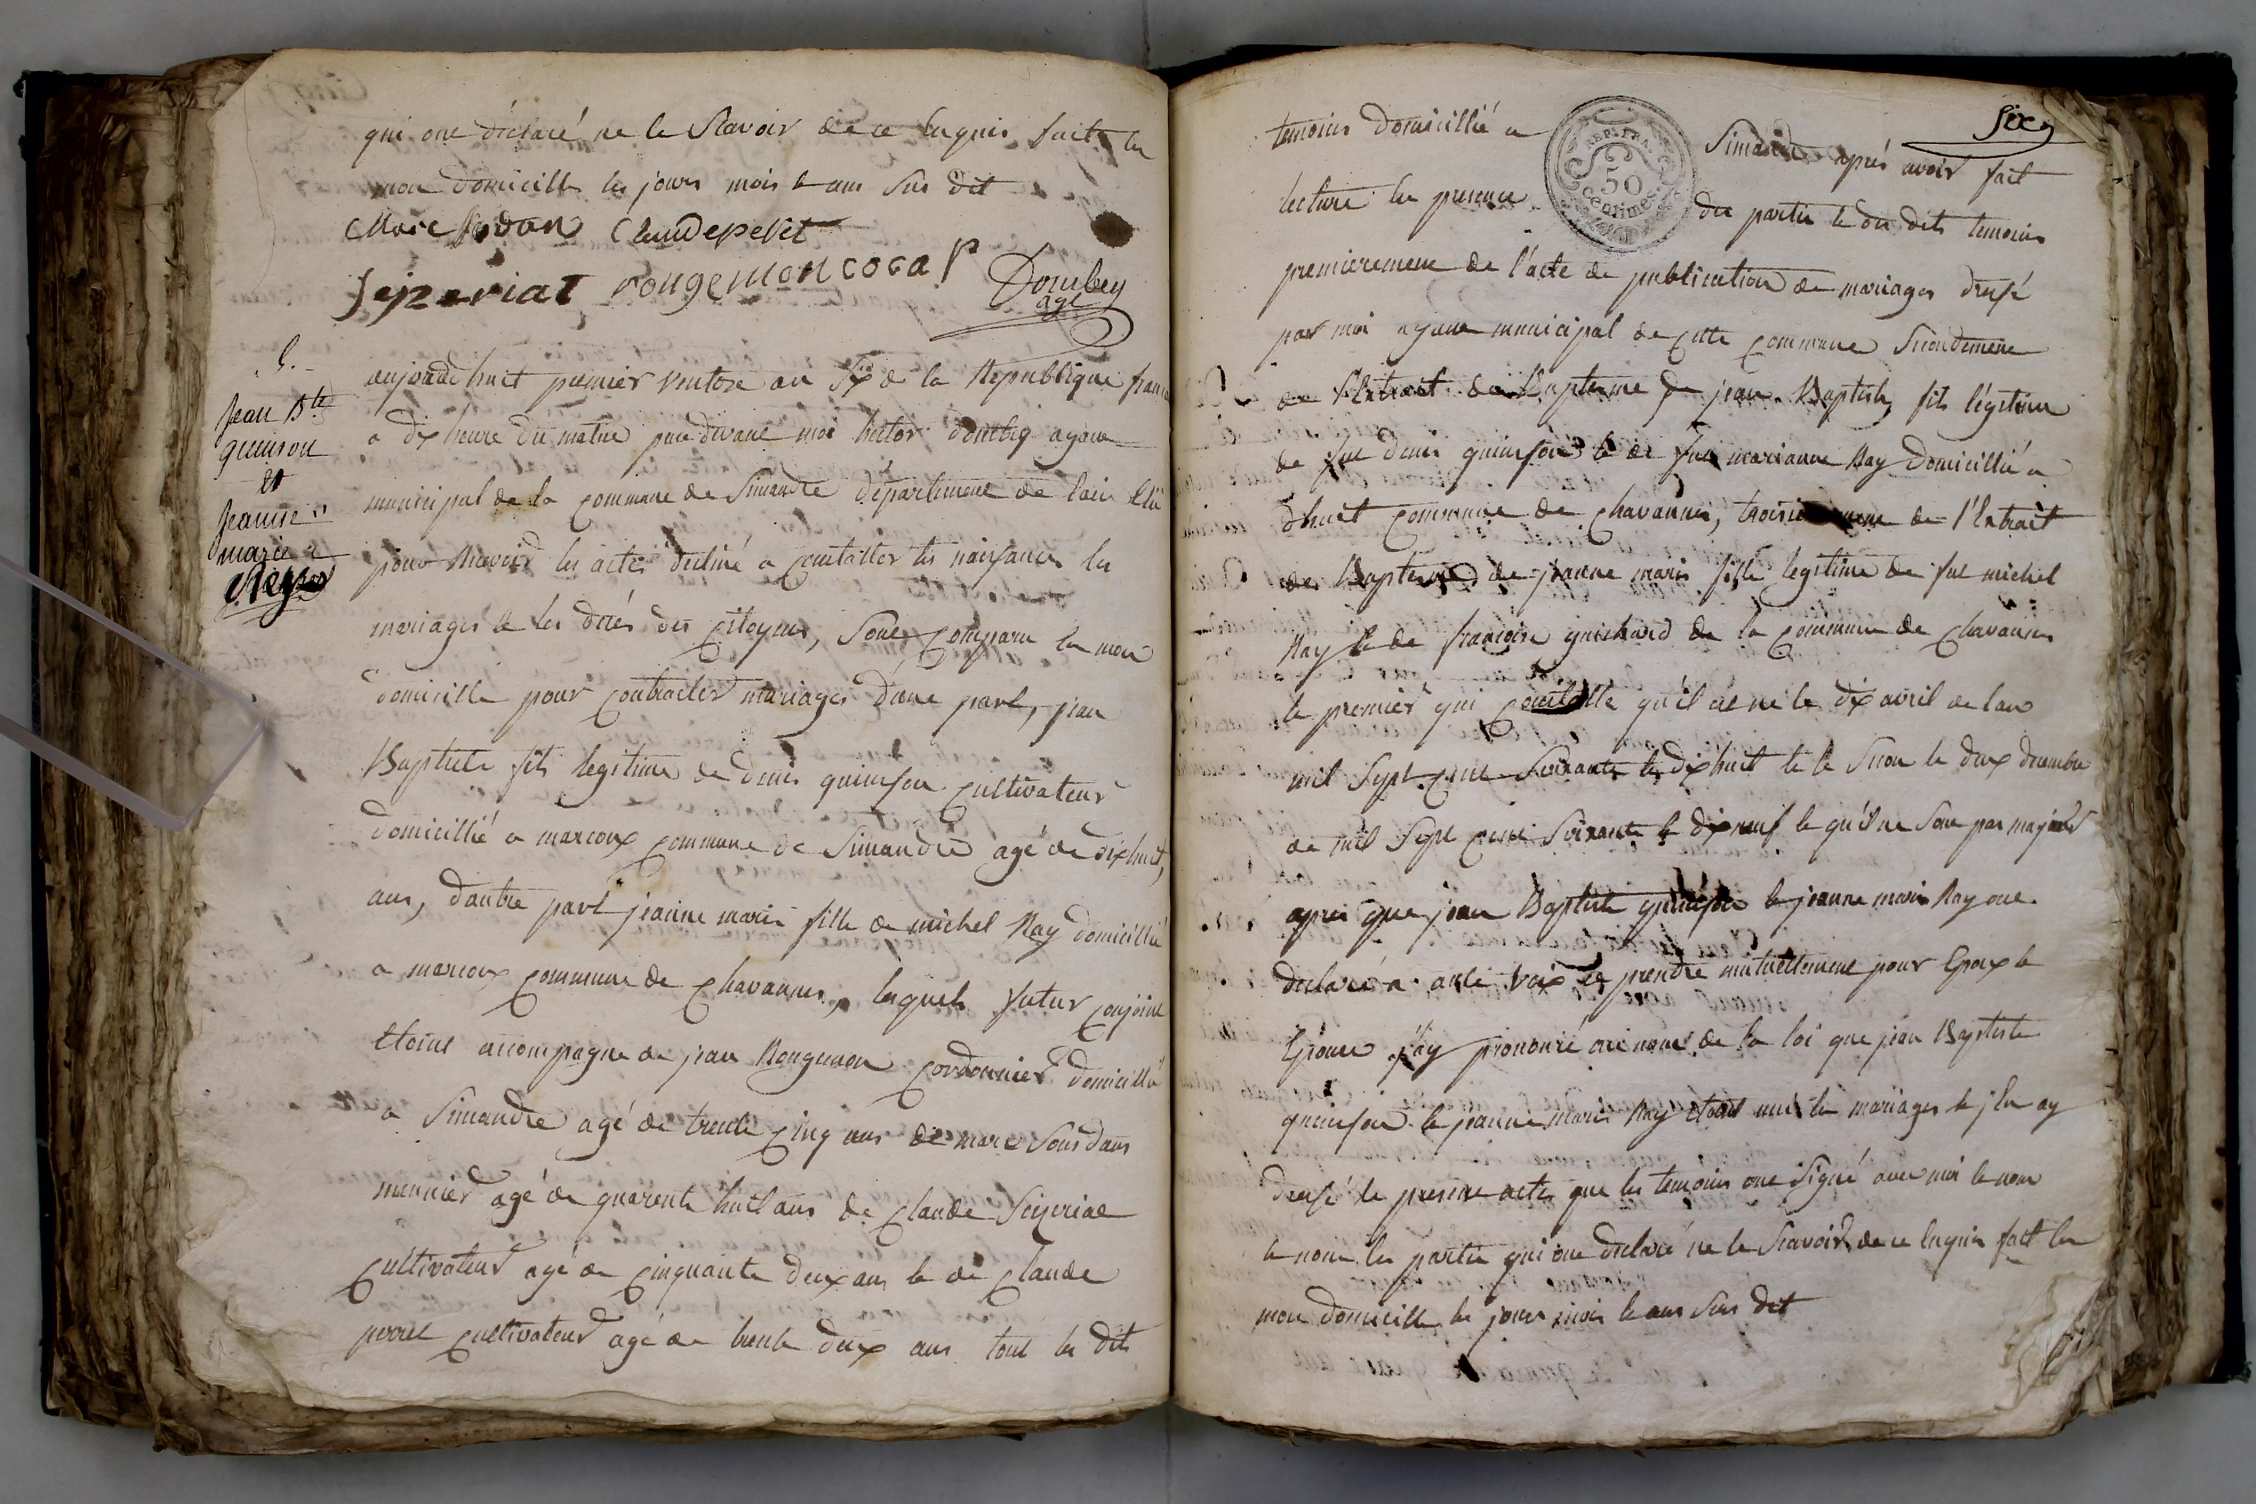 qui ont déclaré ne le Scavoir de ce Enquis fait En
mon domicille les jours mois & an Sus dit
Marc Jordan Claudeperet
Sejperiat rougemoncoca P Dombey
agt
5.
Jean Bte
guinson
et
Jeanne
marie
Reyss
aujourdhuit premier Ventose an Six de la République franc
a dix heure du matin par devant moi hector dombey agent
municipal de la Commune de Simandre département de lain Elu
pour recevoir les actes destiné a Constatter les naissances les
mariages & les décés des Citoyens, Sont Comparu En mon
domicille pour Contracter mariages d'une part, jean
Baptiste fils legitime de denis guinson Cultivateur
domicillié a marcoux Commune de Simandre agé de dixhuit
ans, dautre part jeanne marie fille de michel Ray domicillié
a marcoux Commune de Chavannes, lesquels futur Conjoint
Etoint accompagne de jean Rougemon Cordonnier domicillié
a Simandre agé de trente Cinq ans de marc Jourdans
meunier agé de quarente huit ans de Claude Seiperiat
Cultivateur agé de Cinquante deux ans & de Claude
peret Cultivateur agé de trente deux ans tout les dits
Six
temoins domicillié a Simandre aprés avoir fait
REP. FRA.
50
Centimes
lecture En presence des partie & des dits temoins
premierement de l'acte de publication de mariages dressé
par moi agent municipal de Cette Commune Secondement
de l'Extrait de Bapteme de jean Baptiste, fils légitime
de feu denis guinson & de feue marianne Ray domicillié a
dhuit Commune de Chavannes, troisiemement de l'Extrait
de Bapteme de jeanne marie fille legitime de feu michel
Ray & de francoise guichard de la Commune de Chavannes
le premier qui Constatte qu'il est né le dix avril de lan
mil Sept Cent Soixante & dixhuit & le Secon le deux decembre
de mil Sept Cent Soixante & dixneuf & qu'il ne Sont pas majeur
apres que jean Baptiste guinson & jeanne marie Ray ont
declaré a aute voix Se prendre mutuellement pour Epoux &
Epouse j'ay prononcé au nom de la loi que jean Baptiste
guinson & jeanne marie Ray Etoit uni En mariages & j'En ay
dressé le present actes que les temoins ont Signé avec moi & non
& non les partie qui ont declaré ne le Scavoir de ce Enquis fait En
mon domicille les jours mois & ans Sus dit